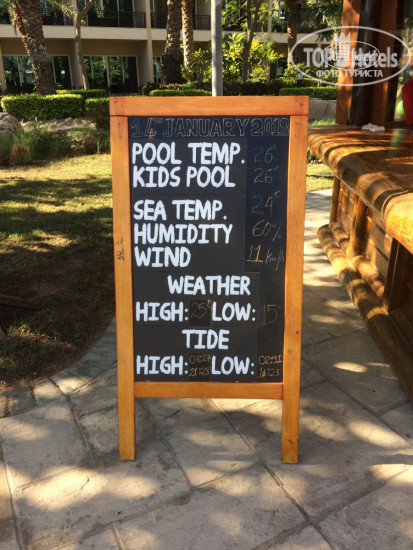 TOPHotels
ФОТО ТУРИСТА
14th JANUARY 2018
POOL TEMP. 26°
KIDS POOL 26°
SEA TEMP. 24°
HUMIDITY 60%
WIND 11 Km/h
WEATHER
HIGH: 25° LOW: 15°
TIDE
HIGH: LOW:
21:28